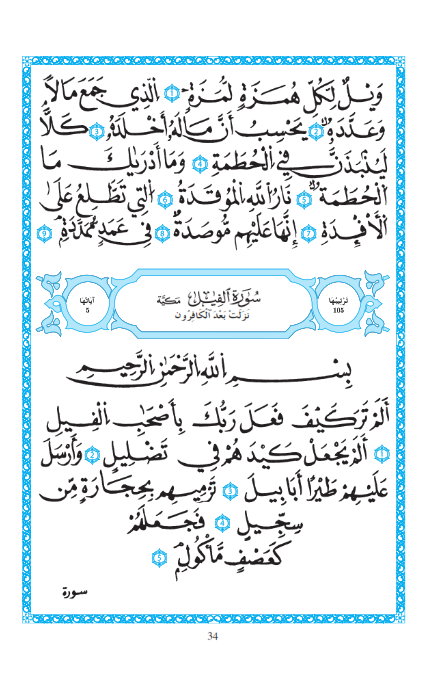 وَيْلٌ لِّكُلِّ هُمَزَةٍ لُّمَزَةٍ 1 اَ۬لَّذِے جَمَعَ مَالاٗ
وَعَدَّدَهُۥ 2 يَحْسِبُ أَنَّ مَالَهُۥ أَخْلَدَهُۥ 3 كَلَّا
لَيُنۢبَذَنَّ فِے اِ۬لْحُطَمَةِ 4 وَمَا أَدْر۪يٰكَ مَا
اَ۬لْحُطَمَةُ 5 نَارُ اُ۬للَّهِ اِ۬لْمُوقَدَةُ 6 اُ۬لتِے تَطَّلِعُ عَلَي
اَ۬لَافْـِٕدَةِ 7 إِنَّهَا عَلَيْهِم مُّوصَدَةٞ 8 فِے عَمَدٖ مُّمَدَّدَةِۢ 9
تَرْتِيبُهَا
105
سُورَةُ الفِيلِ مَكِّيَّة
نَزَلَتْ بَعْدَ الْكَافِرُون
آيَاتُهَا
5
بِسْمِ اِ۬للَّهِ اِ۬لرَّحْمَٰنِ اِ۬لرَّحِيمِ
أَلَمْ تَرَ كَيْفَ فَعَلَ رَبُّكَ بِأَصْحَٰبِ اِ۬لْفِيلِ
1 أَلَمْ يَجْعَلْ كَيْدَهُمْ فِے تَضْلِيلٖ 2 وَأَرْسَلَ
عَلَيْهِمْ طَيْراً أَبَابِيلَ 3 تَرْمِيهِم بِحِجَارَةٖ مِّن
سِجِّيلٖ 4 فَجَعَلَهُمْ
كَعَصْفٖ مَّأْكُولِۢ 5
سورة
34